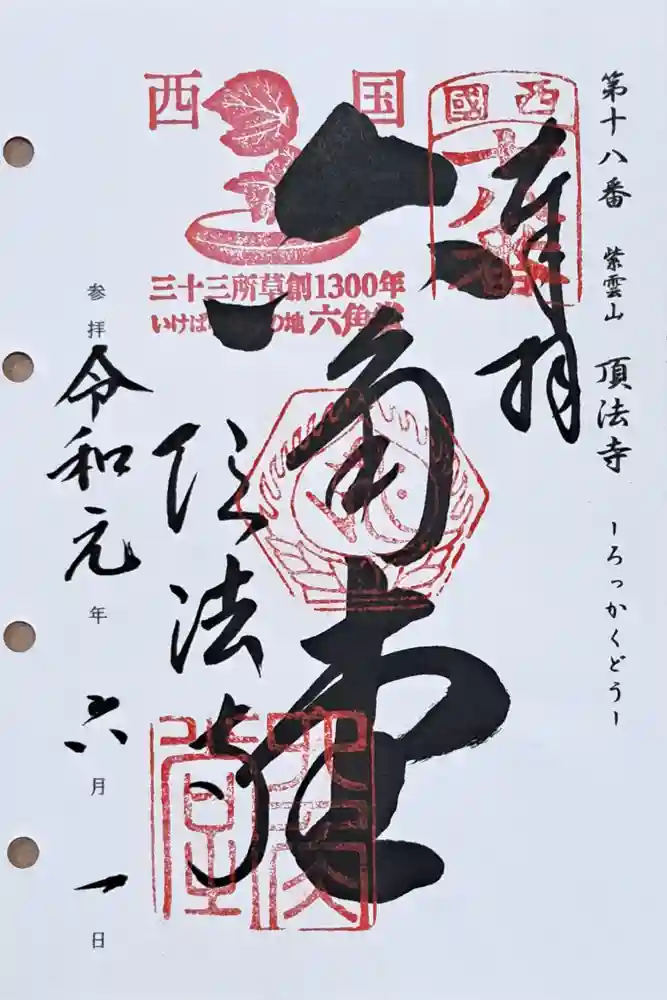 第十八番 紫雲山 頂法寺 ーろっかくどうー
西國
十八番
奉拝
西国
三十三所草創1300年
いけば の地 六角堂
六角堂
頂法寺
六角堂
参拝 令和元年 六月 一日